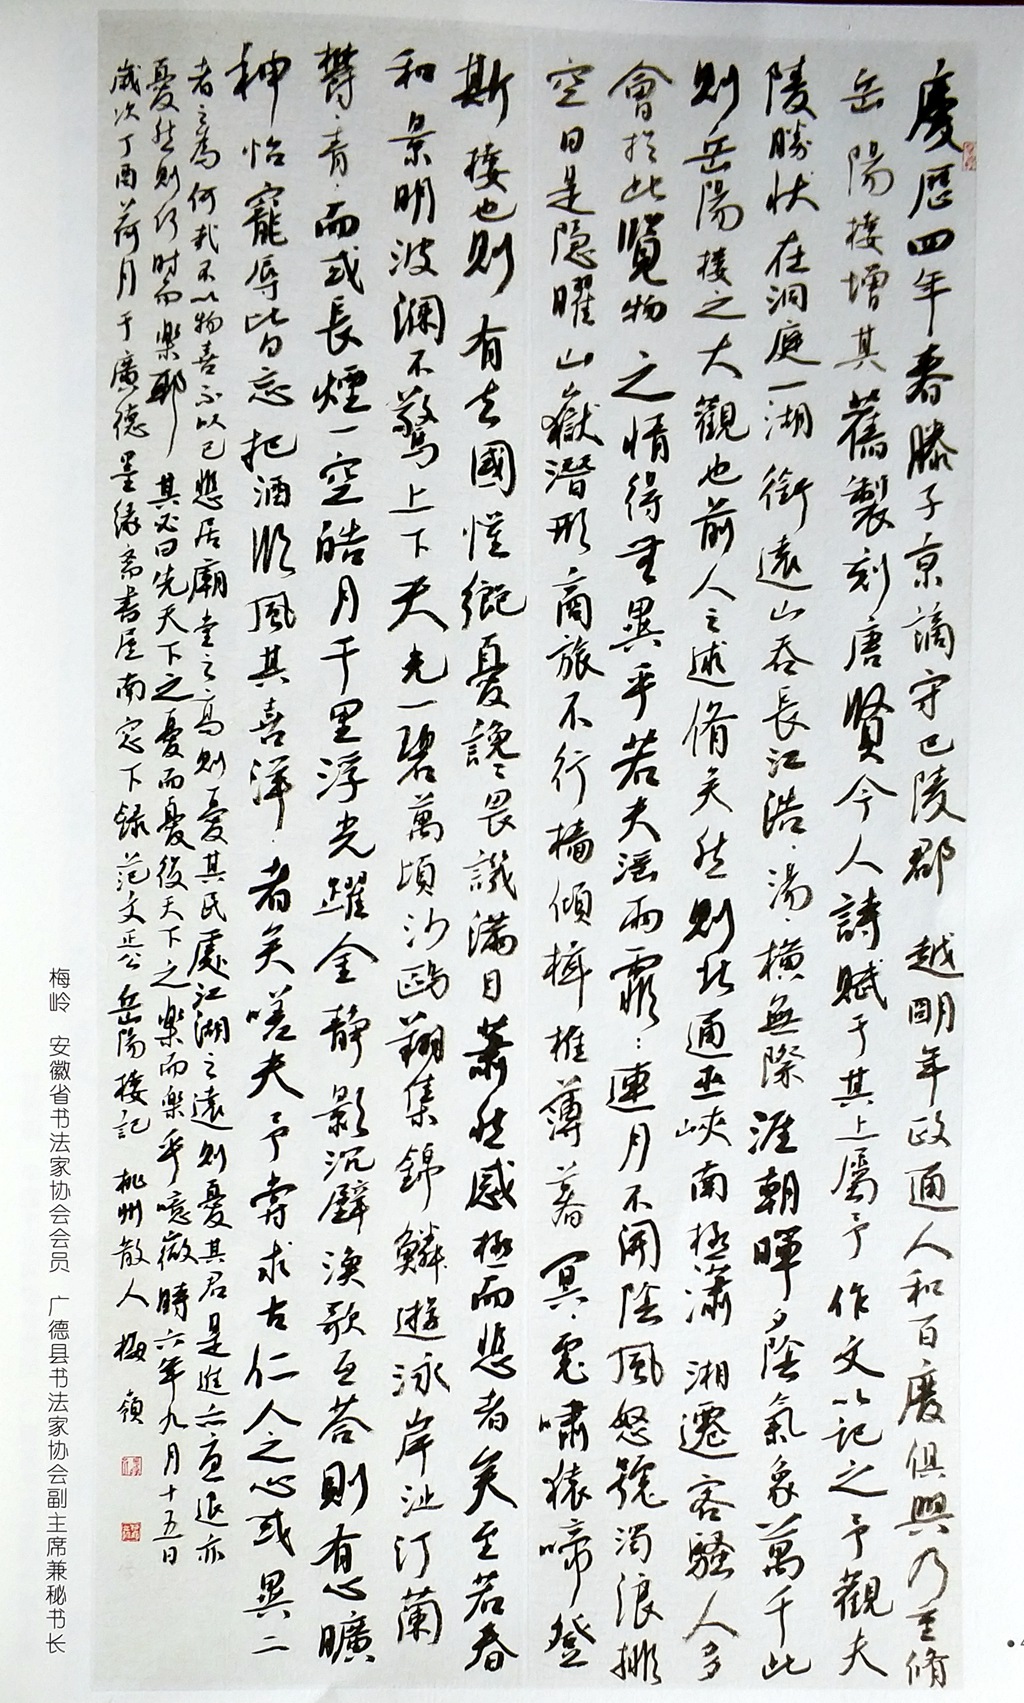 慶歷四年春滕子京謫守巴陵郡越明年政通人和百廢俱興乃重脩
岳陽楼增其舊製刻唐賢今人詩賦于其上屬予作文以記之予觀夫
陵勝狀在洞庭一湖銜遠山吞長江浩湯橫無際涯朝暉夕陰氣象萬千此
則岳陽楼之大觀也前人之述脩矣然則北通巫峽南極瀟湘遷客騷人多
會於此覽物之情得無異乎若夫淫雨霏連月不開陰風怒號濁浪排
空日星隐曜山嶽潛形商旅不行檣傾楫摧薄暮冥虎嘯猿啼登
斯楼也則有去國懷鄉憂讒畏譏滿目蕭然感極而悲者矣至若春
和景明波瀾不驚上下天光一碧萬頃沙鷗翔集錦鱗遊泳岸芷汀蘭
鬱青而或長煙一空皓月千里浮光躍金静影沉璧漁歌互荅則有心曠
神怡寵辱皆忘把酒臨風其喜洋者矣嗟夫予嘗求古仁人之心或異二
者之為何哉不以物喜不以己悲居廟堂之高則憂其民處江湖之遠則憂其君是進亦憂退亦
憂然則何时而樂耶其必曰先天下之憂而憂後天下之樂而樂乎噫微時六年九月十五日
歲次丁酉荷月于廣德墨缘斋書屋南窓下錄范文正公岳陽楼記桃州散人梅嶺
梅岭 安徽省书法家协会会员 广德县书法家协会副主席兼秘书长